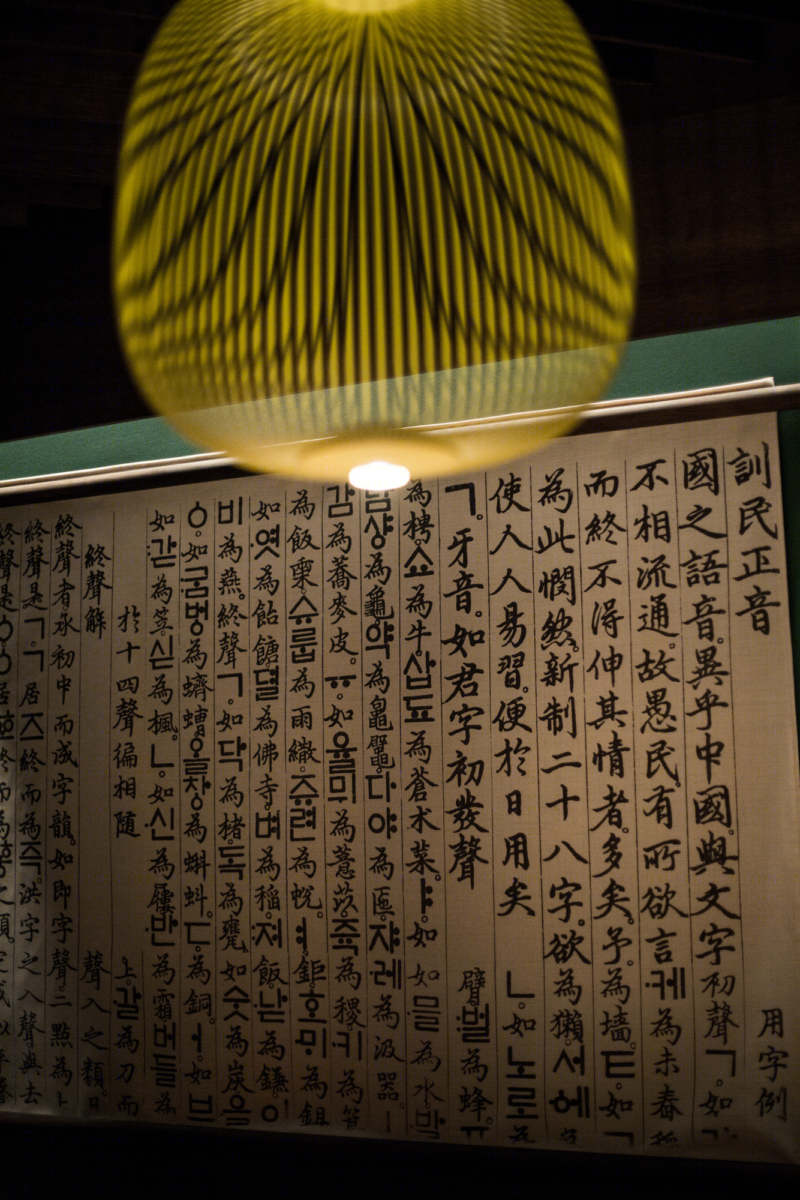 訓民正音 用字例
國之語音。異乎中國。與文字初聲ㄱ。如
不相流通。故愚民。有所欲言케為未舂
而終不得伸其情者。多矣。予。為墻ㅌ。如
為此憫然。新制二十八字。欲為獺。서에
使人人易習。便於日用矣 ㄴ。如노로
ㄱ。牙音。如君字初發聲 臂벌為蜂。ㅠ
為梬쇼為牛。삽됴為蒼朮菜。ㅑ。如如믈為水
샹為龜약為鼊다야為匜쟈레為汲器。ㅣ
감為蕎麥皮。ㅠ如율믜為薏苡쥭為稷키為箕
為飯슈룹為雨繖쥬련為帨。ㅕ鉅호미為鉏
如엿為飴餹뎔為佛寺벼為稻。져飯낟為鎌이
비為燕。終聲ㄱ如닥為楮독為甕。如숫為炭을
ㆁ。如굼벙為蠐螬올창為蝌蚪。ㄷ。為銅。ㅓ。如브
如갇為笠싣為楓。ㄴ。如신為屨반為霜버들為
於十四聲徧相隨 上。갈為刀而
終聲解 聲入之類。
終聲者承初中而成字韻。如即字聲。二點為上
終聲是ㄱㄱ居즈終而為즉。洪字之八聲與去